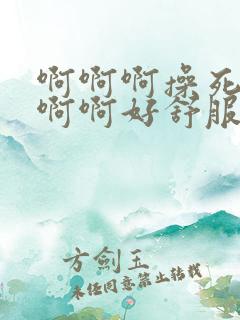 啊啊啊操死
啊啊好舒服
方剑玉
未经同意禁止转载